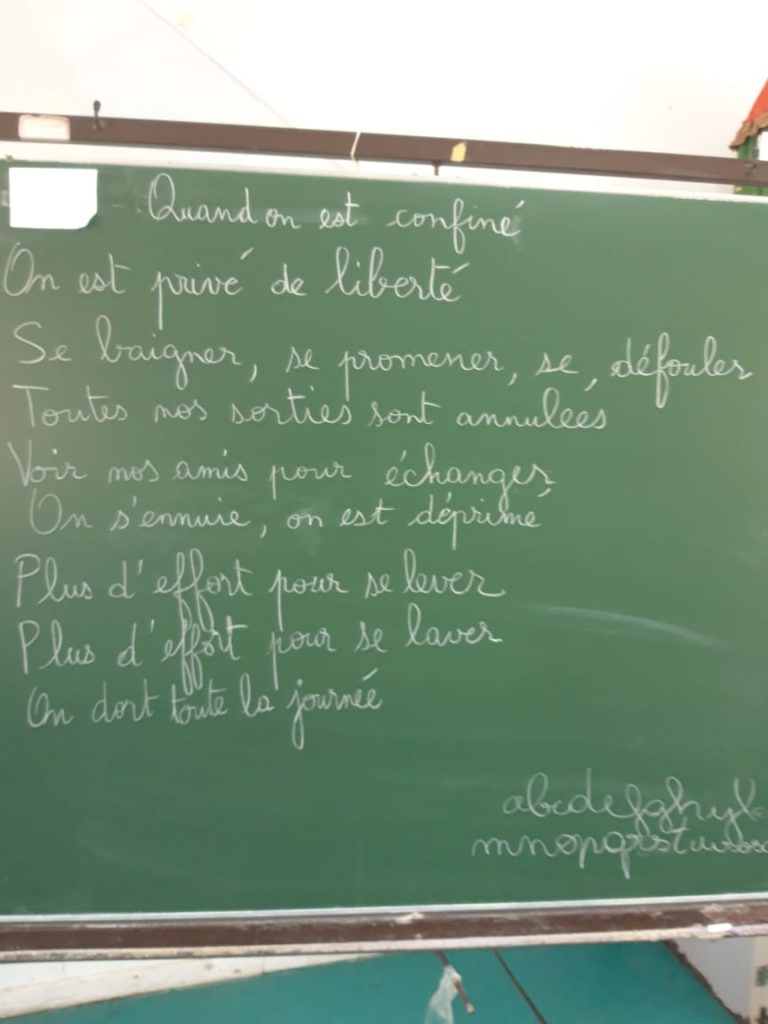 Quand on est confiné
On est privé de liberté
Se baigner, se promener, se, défouler
Toutes nos sorties sont annulées
Voir nos amis pour échanger
On s'ennuie, on est déprimé
Plus d'effort pour se lever
Plus d'effort pour se laver
On dort toute la journée
abcdefghijk
mnopqrstuvw